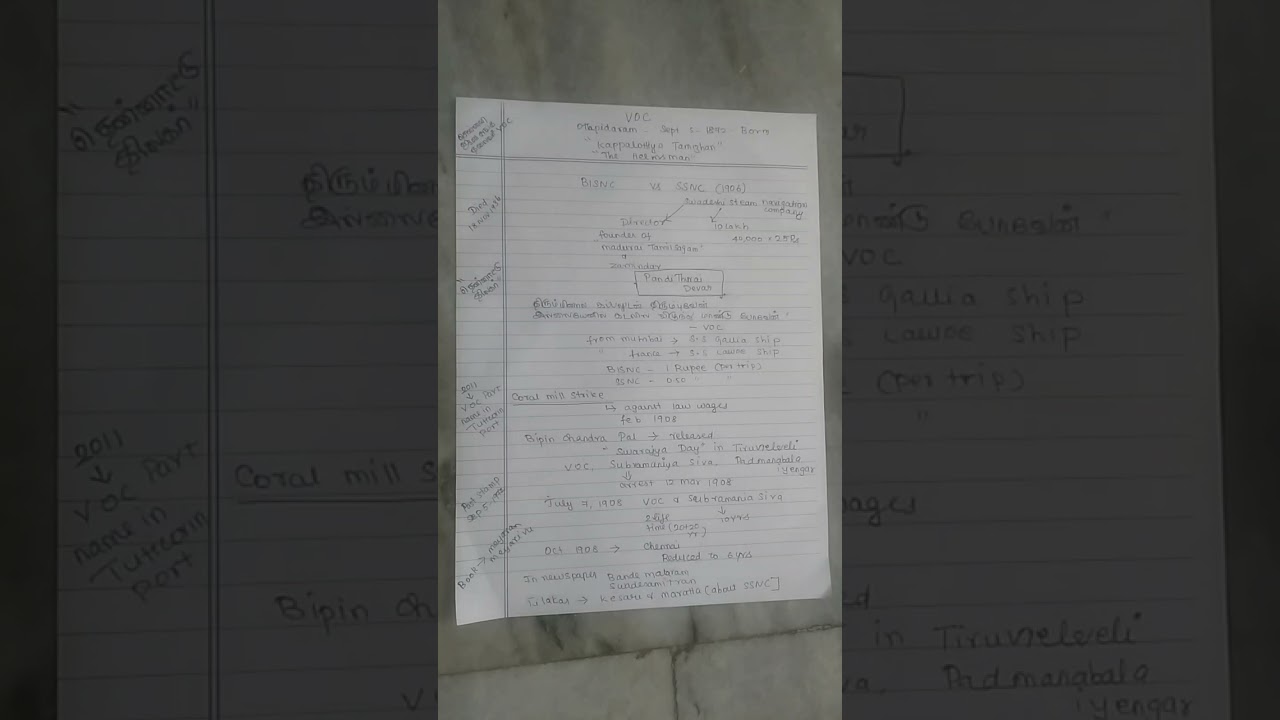 VOC
Ottapidaram - Sept 5 - 1872 Born
"Kappalottiya Tamizhan"
"The helmsman"
BISNC vs SSNC (1906)
Swadeshi steam navigation
company
Director
10 lakh
founder of
40,000 × 25 Rs
"madurai Tamilsagam"
&
zamindar
Pandi Thurai
Devar
- VOC
from mumbai → S.S Gallia ship
" france → S.S Lawoe ship
BISNC - 1 Rupee (per trip)
SSNC - 0.50 " "
Coral mill strike
↳ against law wages
feb 1908
Bipin Chandra Pal → released
"Swarajya Day" in Tirunelveli
VOC, Subramaniya Siva, Padmanabala
iyengar
arrest 12 mar 1908
July 7, 1908 VOC & Subramania Siva
2 life
time (20+20
yr)
10 yrs
Oct 1908 → Chennai
Reduced to 6 yrs
In newspaper Bande mataram
Swadesamitran
Tilakar → Kesari & maratta [about SSNC]
Died
18 Nov 1936
"தென்னாட்டு
திலகர்"
2011
↓
VOC Port
name in
Tuticorin
port